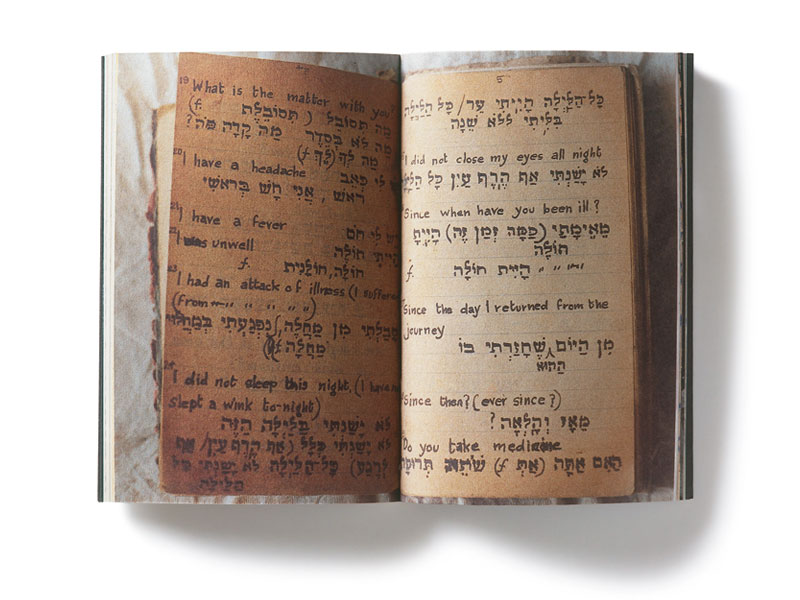 19 What is the matter with you?
(f. תסובלת) מה תסובל
מה לא בסדר מה קרה פה?
מה לך (לך f)
20 I have a headache יש לי כאב
ראש, אני חש בראשי
21 I have a fever יש לי חם
22 I was unwell הייתי חולה
f. חולה, חולנית
23 I had an attack of illness (I suffered
(from — " " " " ")
סבלתי מן מחלה, נפגעתי במחלה
מחלה
24 I did not sleep this night (I have not
slept a wink to-night)
לא ישנתי בלילה הזה
לא ישנתי כלל (אף הרף עין/אף
לרגע) כל-הלילה לא ישנתי כל
5
כל-הלילה הייתי ער/כל הלילה
בליתי ללא שנה
I did not close my eyes all night
לא ישנתי אף הרף עין כל הלילה
Since when have you been ill?
מאימתי (כמה זמן זה) היית
חולה
f. היית חולה
Since the day I returned from the
journey
מן היום שחזרתי בו
ההוא
Since then? (ever since?)
מאז והלאה?
Do you take medicine
האם אתה (את f) שותה תרופה